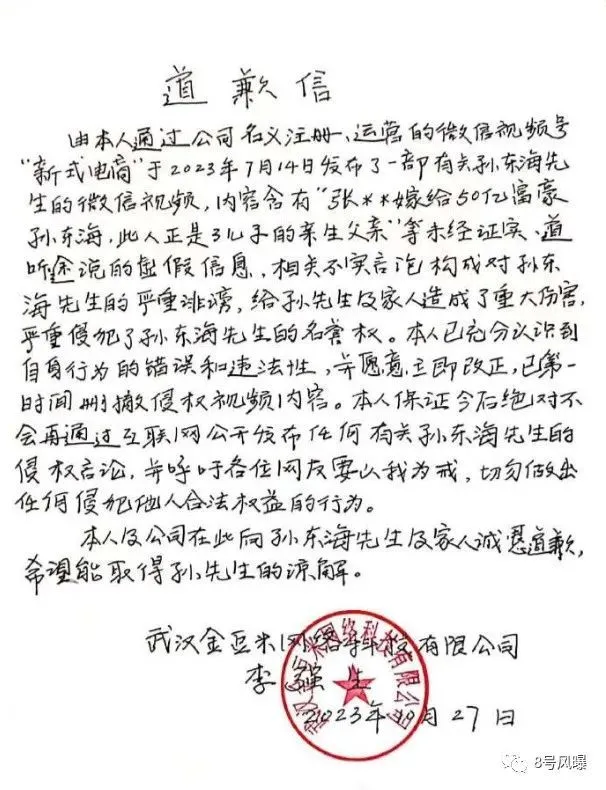 道歉信
由本人通过公司名义注册、运营的微信视频号
“新式电商”于2023年7月14日发布了一部有关孙东海先
生的微信视频,内容含有“张**嫁给50亿富豪
孙东海,此人正是3儿子的亲生父亲”等未经证实、道
听途说的虚假信息,相关不实言论构成对孙东
海先生的严重诽谤,给孙先生及家人造成了重大伤害,
严重侵犯了孙东海先生的名誉权。本人已充分认识到
自身行为的错误和违法性,并愿意立即改正,已第一
时间删撤侵权视频内容。本人保证今后绝对不
会再通过互联网公开发布任何有关孙东海先生的
侵权言论,并呼吁各位网友要以我为戒,切勿做出
任何侵犯他人合法权益的行为。
本人及公司在此向孙东海先生及家人诚恳道歉,
希望能取得孙先生的谅解。
武汉金豆米网络科技有限公司
李强生
2023年10月27日
8号风曝